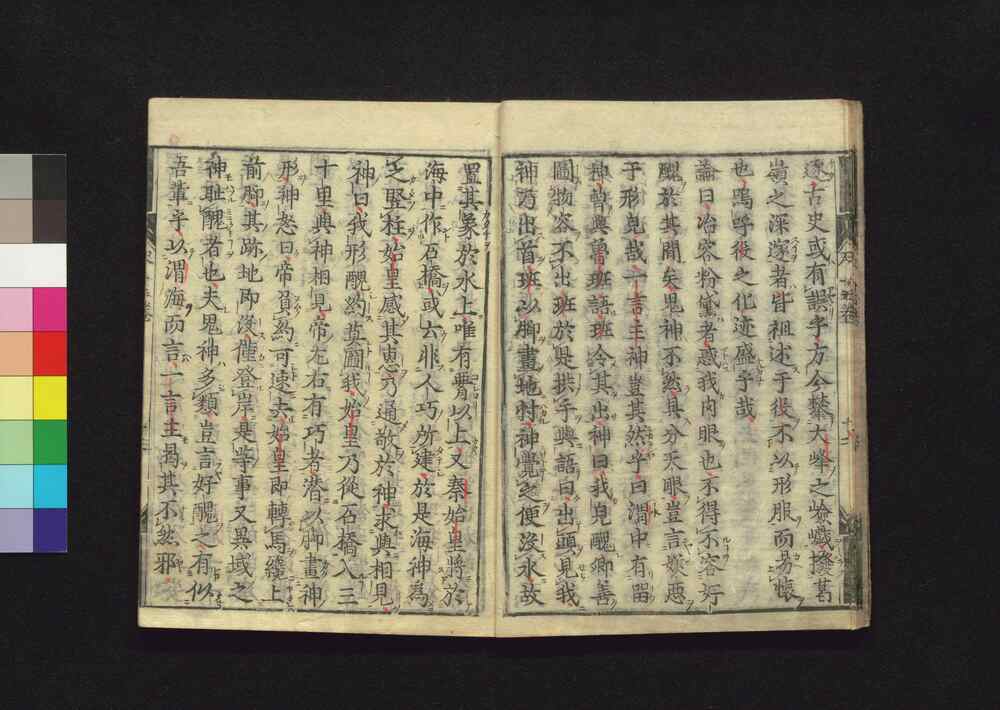 逐古史或有誤乎方今攀大峰之嶮巇撥葛
嶺之深邃者皆祖述于役不以形服而易懷
也嗚呼役之化迹盛乎哉
論曰冶容粉黛者惑我肉眼也不得不容好
醜於其間矣鬼神不然具分天眼豈言妍惡
于形皃哉一言主神豈其然乎曰澗中有留
神曽與魯班語班令其出神曰我皃醜卿善
圖物容不出班於是拱手與語曰出頭見我
神乃出首班以脚畫地忖神覺之便沒水故
置其象於水上唯有腰以上又秦始皇將於
海中作石橋或云非人巧所建於是海神為
之竪柱始皇感其惠乃通敬於神求與相見
神曰我形醜約莫圖我始皇乃從石橋入三
十里與神相見帝左右有巧者潛以脚畫神
形神怒曰帝負約可速去始皇即轉馬纔上
前脚其跡地即沒僅登岸是等事又異域之
神耻醜者也夫鬼神多類豈言好醜之有似
吾輩乎以渭海而言一言主曷其不然邪